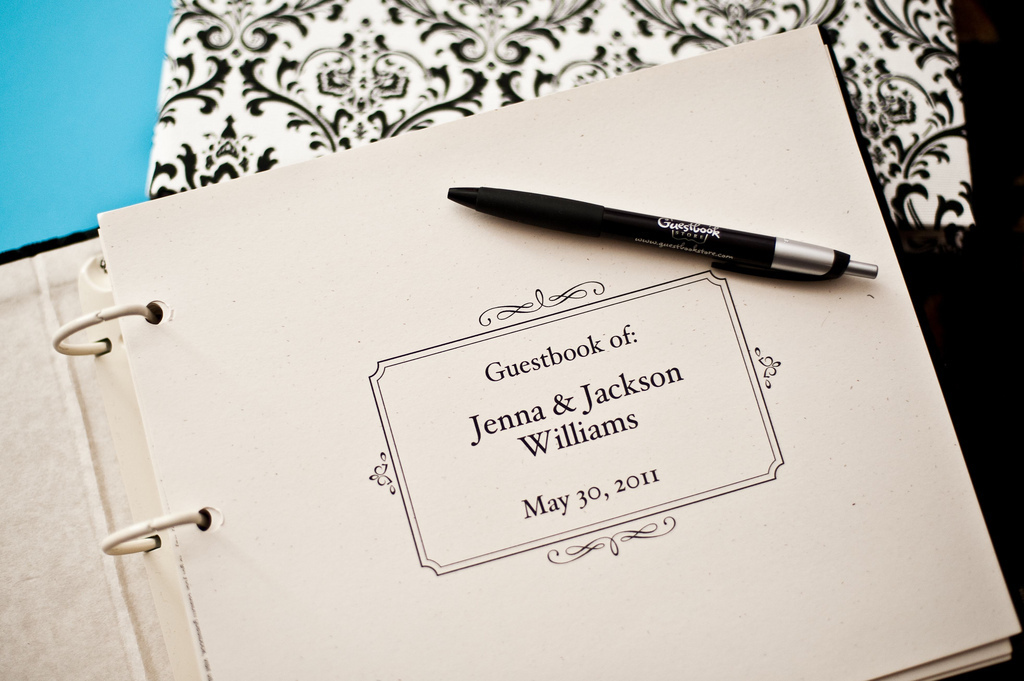 Guestbook
STORE
www.guestbookstore.com
Guestbook of:
Jenna & Jackson
Williams
May 30, 2011